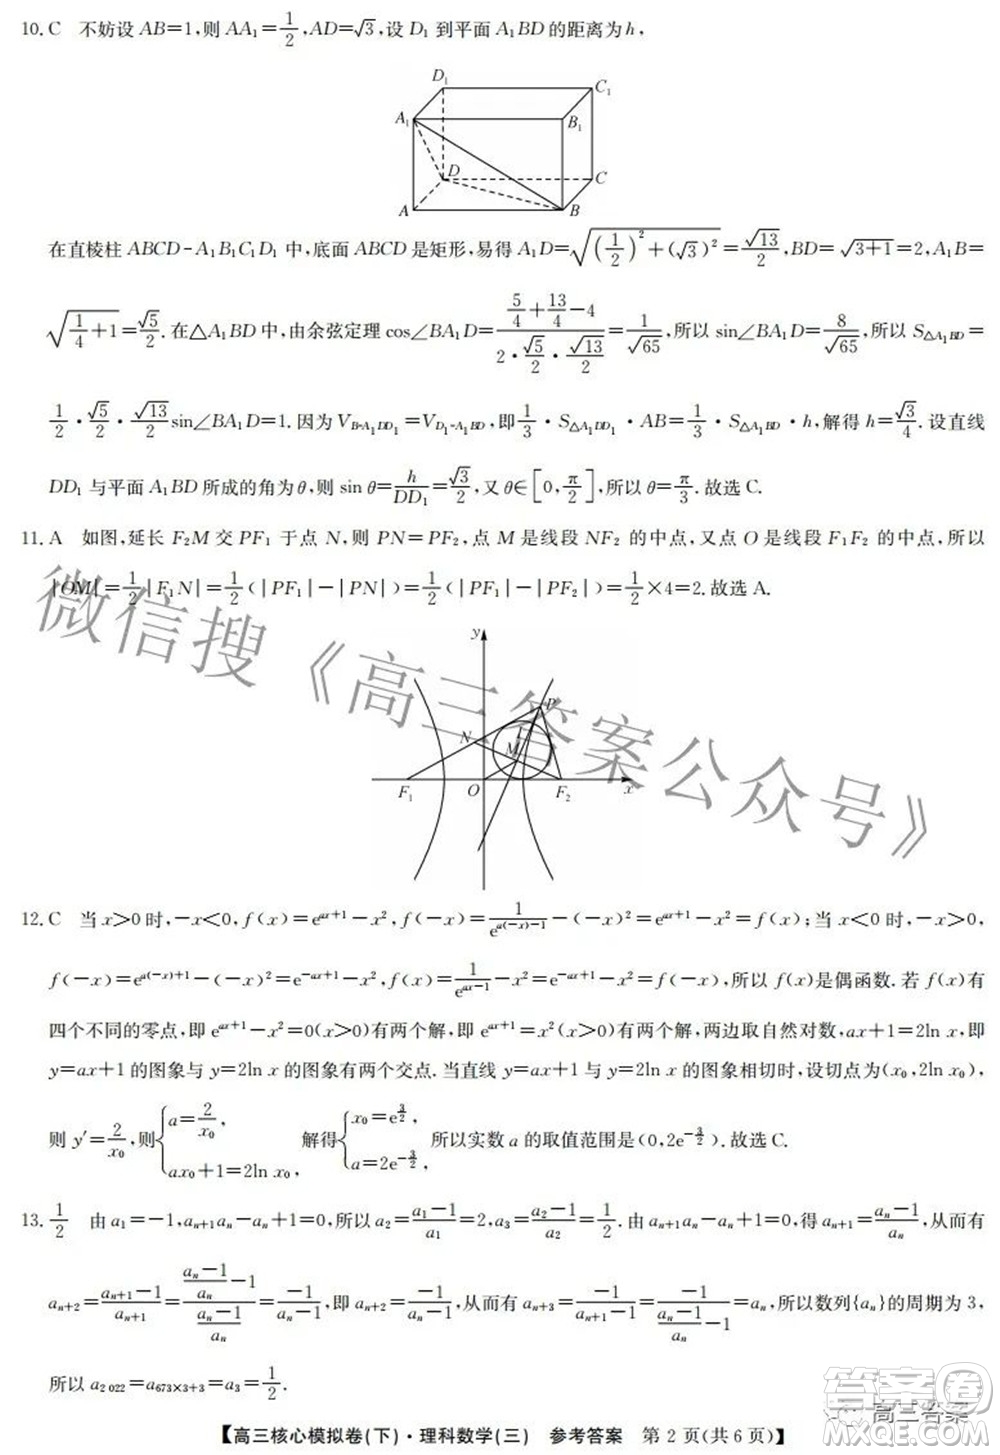 10. C　不妨设 AB=1,则 AA₁=1/2, AD=√3,设 D₁ 到平面 A₁BD 的距离为 h,
D₁ C₁
A₁ B₁
D C
A B
在直棱柱 ABCD-A₁B₁C₁D₁ 中,底面 ABCD 是矩形,易得 A₁D=√((1/2)²+(√3)²)=√13/2, BD=√(3+1)=2, A₁B=
√(1/4+1)=√5/2. 在△A₁BD 中,由余弦定理 cos∠BA₁D=(5/4+13/4-4)/(2·√5/2·√13/2)=1/√65,所以 sin∠BA₁D=8/√65,所以 S△A₁BD=
1/2·√5/2·√13/2 sin∠BA₁D=1. 因为 V_{B-A₁DD₁}=V_{D₁-A₁BD},即 1/3·S△A₁DD₁·AB=1/3·S△A₁BD·h,解得 h=√3/4. 设直线
DD₁ 与平面 A₁BD 所成的角为 θ,则 sin θ=h/DD₁=√3/2,又 θ∈[0,π/2],所以 θ=π/3. 故选 C.
11. A　如图,延长 F₂M 交 PF₁ 于点 N,则 PN=PF₂,点 M 是线段 NF₂ 的中点,又点 O 是线段 F₁F₂ 的中点,所以
|OM|=1/2|F₁N|=1/2(|PF₁|-|PN|)=1/2(|PF₁|-|PF₂|)=1/2×4=2. 故选 A.
y
P
N I
M
F₁ O F₂ x
12. C　当 x>0 时,-x<0, f(x)=e^{ax+1}-x², f(-x)=1/e^{a(-x)-1}-(-x)²=e^{ax+1}-x²=f(x);当 x<0 时,-x>0,
f(-x)=e^{a(-x)+1}-(-x)²=e^{-ax+1}-x², f(x)=1/e^{ax-1}-x²=e^{-ax+1}-x²,所以 f(x)是偶函数. 若 f(x)有
四个不同的零点,即 e^{ax+1}-x²=0(x>0)有两个解,即 e^{ax+1}=x²(x>0)有两个解,两边取自然对数, ax+1=2ln x,即
y=ax+1 的图象与 y=2ln x 的图象有两个交点. 当直线 y=ax+1 与 y=2ln x 的图象相切时,设切点为(x₀,2ln x₀),
则 y′=2/x₀,则{a=2/x₀, ax₀+1=2ln x₀, 解得{x₀=e^{3/2}, a=2e^{-3/2}, 所以实数 a 的取值范围是(0,2e^{-3/2}). 故选 C.
13. 1/2　由 a₁=-1, aₙ₊₁aₙ-aₙ+1=0,所以 a₂=(a₁-1)/a₁=2, a₃=(a₂-1)/a₂=1/2. 由 aₙ₊₁aₙ-aₙ+1=0,得 aₙ₊₁=(aₙ-1)/aₙ,从而有
aₙ₊₂=(aₙ₊₁-1)/aₙ₊₁=((aₙ-1)/aₙ-1)/((aₙ-1)/aₙ)=-1/(aₙ-1),即 aₙ₊₂=-1/(aₙ-1),从而有 aₙ₊₃=-1/(aₙ₊₁-1)=-1/((aₙ-1)/aₙ-1)=aₙ,所以数列{aₙ}的周期为 3,
所以 a₂₀₂₂=a_{673×3+3}=a₃=1/2.
【高三核心模拟卷(下)·理科数学(三)　参考答案　第 2 页(共 6 页)】
微信搜《高三答案公众号》
高三答案
答案圈
MXQE.COM